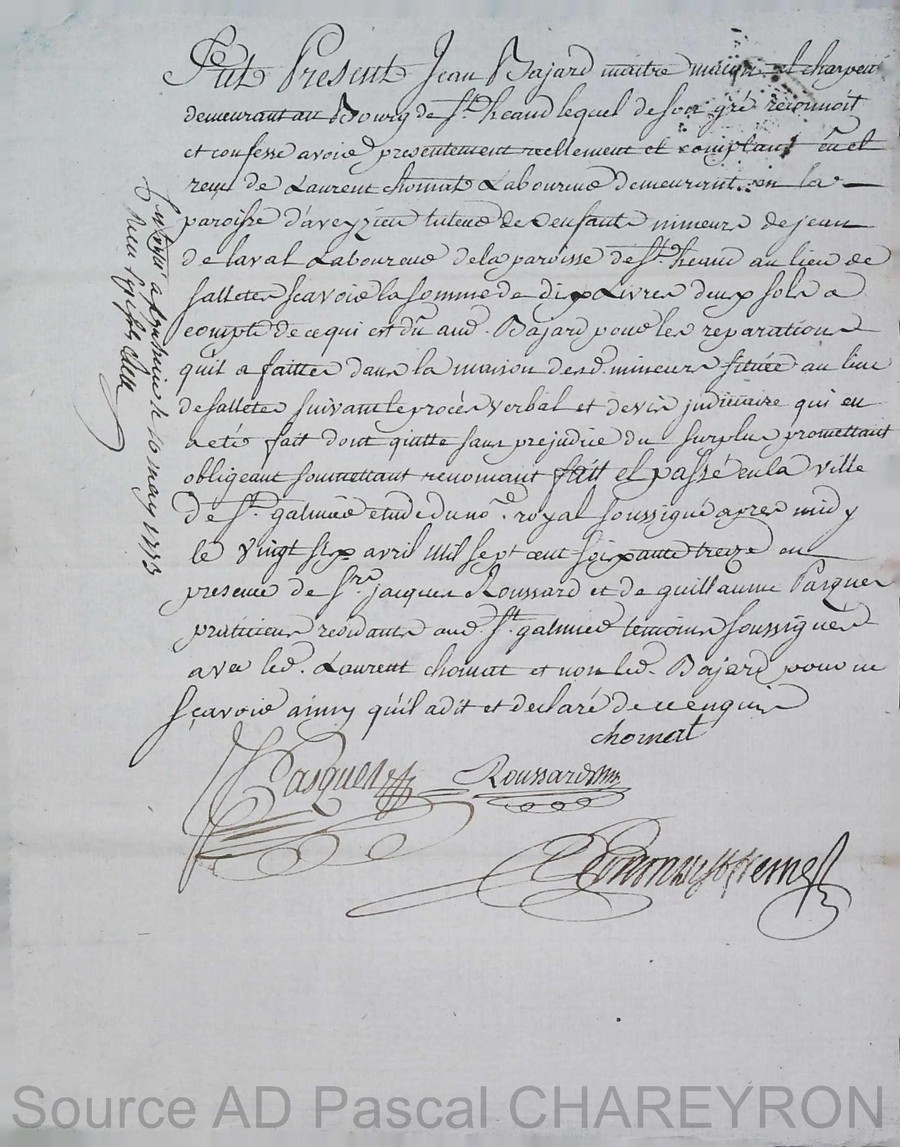 Fut Present Jean Bajard maitre maçon et charpen
demeurant au Bourg de St. heand lequel de son gré reconnoit
et confesse avoir presentement reellement et comptant eu et
reçu de Laurent chomat Laboureur demeurant en la
paroisse d'aveyzieu tuteur des enfants mineurs de jean
de laval Laboureur de la paroisse de St. heand au lieu de
salleter sçavoir la somme de dix Livres deux sols a
compte de ce qui est dû aud. Bajard pour les reparations
quil a faittes dans la maison desd. mineurs située au lieu
de salleter suivant le procés verbal et devis judiciaire qui en
a eté fait dont quitte sans prejudice du surplus promettant
obligeant soumettant renonçant fait et passé en la ville
de St. galmier etude du no.re royal soussigné apres midy
le vingt six avril mil sept cent soixante treize en
presence de Sr. jacques Roussard et de guillaume Pasquer
praticiens residants aud. St. galmier temoins soussignes
avec led. Laurent chomat et non led. Bajard pour ne
sçavoir ainsy qu'il a dit et declaré de ce enquis
chomat
Pasquer Roussard
nore
a St. le 10 may 1773
Reçu